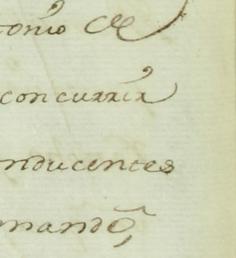 tonio de
concurrir
nducentes
mandó,